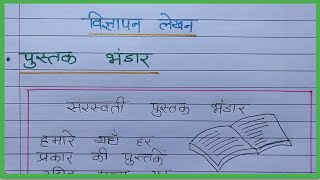 विज्ञापन लेखन
• पुस्तक भंडार
सरस्वती पुस्तक भंडार
हमारे यहाँ हर
प्रकार की पुस्तकें